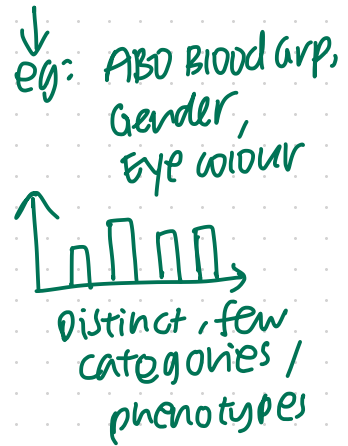 eg: ABO Blood Grp,
Gender,
Eye colour
Distinct, few
categories /
phenotypes